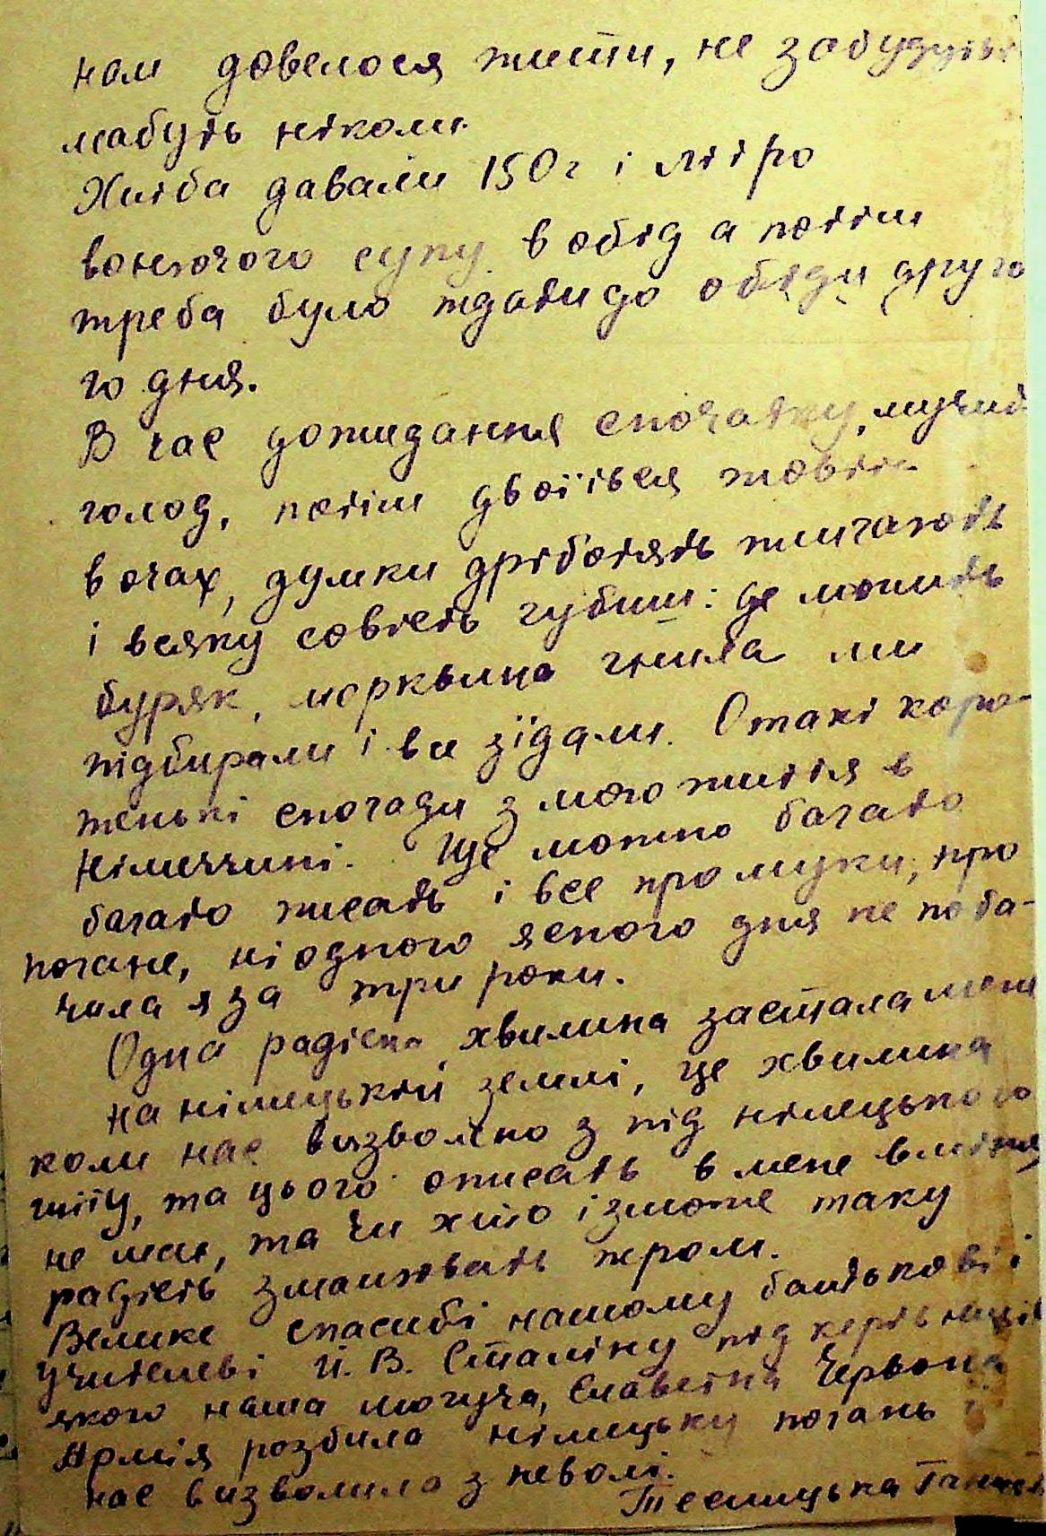 нам довелося жити, не забудуть
мабуть ніколи.
Хліба давали 150 г і літро
вонючого супу в обід а потім
треба було ждати до обіди друго
го дня.
В час дожидання спочатку, мучив
голод, потім двоїться жовтік
в очах, думки дріботять жмигають
і всяку совість губиш: де лежить
буряк, морквина гнила ми
підбирали і все зїдали. Отакі коро-
тенькі спогади з мого життя в
Німеччині. Ще можно багато
багато писать і все про муки, про
погане, ні одного ясного дня не поба-
чила я за три роки.
Одна радісна хвилина застала мене
на німецькій землі, це хвилина
коли нас визволено з під німецького
гніту, та цього описать в мене вміння
не має, та чи хто ізможе таку
радість змалювать пером.
Велике спасибі нашому батькові і
учителеві Й. В. Сталіну під керівництвом
якого наша могуча, славетна Червона
Армія розбила німецьку погань і
нас визволила з неволі.
Теслицька